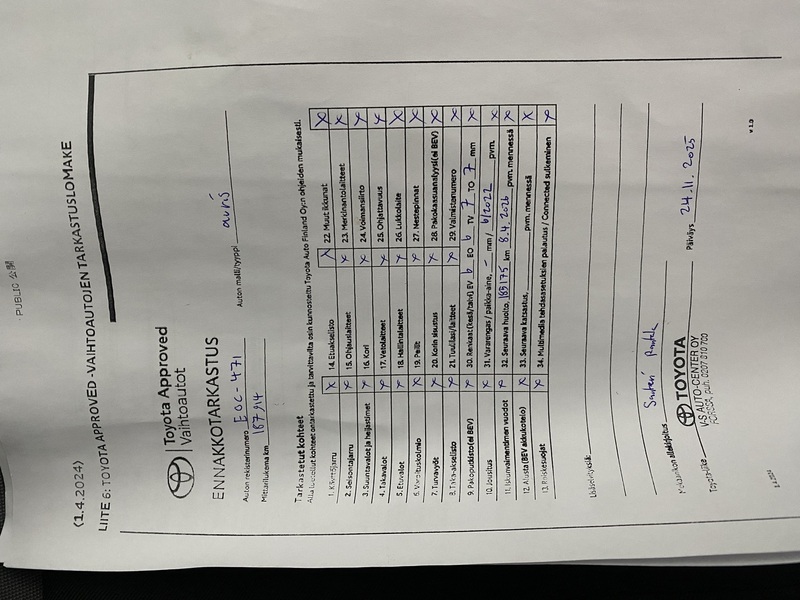 PUBLIC 公開
(1.4.2024)
LIITE 6: TOYOTA APPROVED -VAIHTOAUTOJEN TARKASTUSLOMAKE
Toyota Approved
Vaihtoautot
ENNAKKOTARKASTUS
Auton rekisterinumero EOC-471 Auton malli/tyyppi auris
Mittarilukema km 187914
Tarkastetut kohteet
Alla luetellut kohteet on tarkastettu ja tarvittavilta osin kunnostettu Toyota Auto Finland Oy:n ohjeiden mukaisesti.
1. Käsijarru X 14. Etuakselisto X 22. Muut ikkunat X
2. Seisontajarru X 15. Ohjauslaitteet X 23. Merkinantolaitteet X
3. Suuntavalot ja heijastimet X 16. Kori X 24. Voimansiirto X
4. Takavalot X 17. Vetolaitteet X 25. Ohjattavuus X
5. Etuvalot X 18. Hallintalaitteet X 26. Lukkolaite X
6. Varoituskolmio X 19. Peilit X 27. Nestepinnat X
7. Turvavyöt X 20. Korin sisustus X 28. Pakokaasuanalyysi(ei BEV) X
8. Taka-akselisto X 21. Tuulilasi/laitteet X 29. Valmistenumero X
9. Pakoputkisto(ei BEV) X 30. Renkaat (kesä/talvi) EV 6 EO 6 TV 7 TO 7 mm X
10. Jousitus X 31. Vararengas / paikka-aine, - mm / 6/2022 pvm. X
11. Iskunvaimentimen vuodot X 32. Seuraava huolto, 189175 km 8.4.2026 pvm. mennessä X
12. Alusta (BEV akkukotelo) X 33. Seuraava katsastus, pvm. mennessä X
13. Roiskesuojat X 34. Multimedia tehdasasetuksien palautus / Connected sulkeminen X
Lisäselityksiä:
Mekaanikon allekirjoitus
Toyota-liike TOYOTA Päiväys 24.11.2025
V-S AUTO-CENTER OY
FORSSA, puh. 0207 010 700
v 1.9